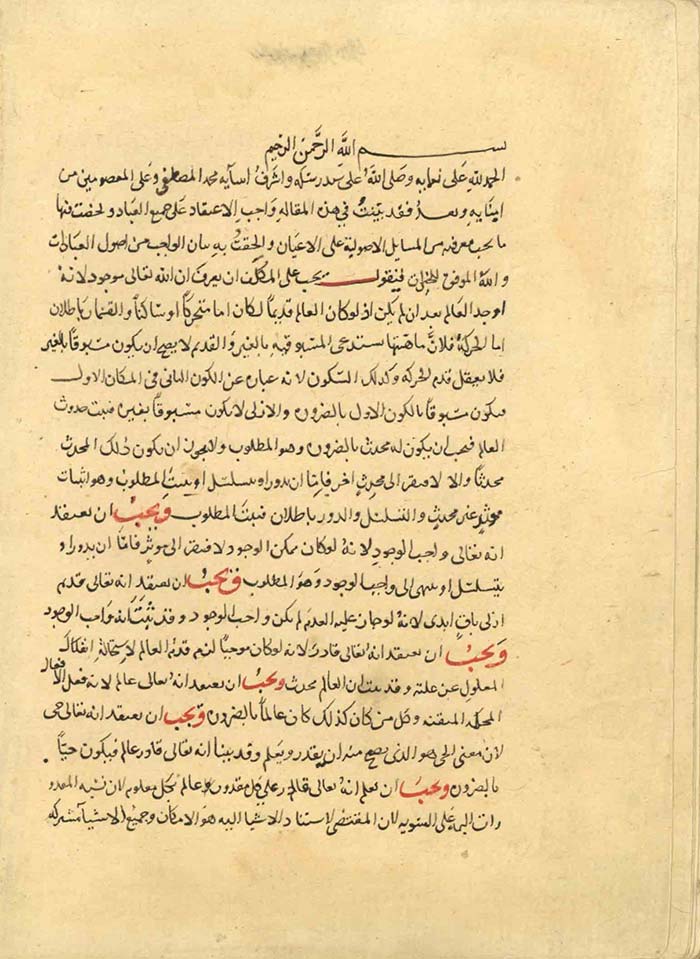 بسم الله الرحمن الرحيم
الحمد لله على نعمايه وصلى الله على سيد رسله واشرف انبيآيه محمد المصطفى وعلى المعصومين من
ابنايه وبعد فقد بينت في هذه المقاله واجب الاعتقاد على جميع العباد ولخصت فيها
ما يجب معرفته من المسايل الاصولية على الاعيان والحقت به بيان الواجب من اصول العبادات
والله الموفق للخيرات فنقول يجب على المكلف ان يعرف ان الله تعالى موجود لانه
اوجد العالم بعد ان لم يكن اذ لو كان العالم قديما لكان اما متحركا او ساكنا والقسمان باطلان
اما الحركة فلان ماهيتها تستدعي المسبوقيه بالغير والقديم لا يصح ان يكون مسبوقا بالغير
فلا يعقل قدم الحركه وكذلك السكون لانه عباره عن الكون الثاني في المكان الاول
فيكون مسبوقا بالكون الاول بالضروره والازلي لا يكون مسبوقا بغيره فثبت حدوث
العالم فيجب ان يكون له محدث بالضروره وهو المطلوب ولا يجوز ان يكون ذلك المحدث
محدثا والا لافتقر الى محدث اخر فاما ان يدور او يتسلسل او يثبت المطلوب وهو اثبات
موثر غير محدث والتسلسل والدور باطلان فيثبت المطلوب ويجب ان يعتقد
انه تعالى واجب الوجود لانه لو كان ممكن الوجود لافتقر الى موثر فاما ان يدور او
يتسلسل او ينتهي الى واجب الوجود وهو المطلوب ويجب ان يعتقد انه تعالى قديم
ازلي باق ابدي لانه لو جاز عليه العدم لم يكن واجب الوجود وقد ثبت انه واجب الوجود
ويجب ان يعتقد انه تعالى قادر لانه لو كان موجبا لزم قدم العالم لاستحالة انفكاك
المعلول عن علته وقد بينت ان العالم محدث ويجب ان يعتقد انه تعالى عالم لانه فعل الافعال
المحكمه المتقنه وكل من كان كذلك كان عالما بالضروره ويجب ان يعتقد انه تعالى حي
لان معنى الحي هو الذي يصح منه ان يقدر ويعلم وقد بينا انه تعالى قادر عالم فيكون حيا
بالضروره ويجب ان يعلم انه تعالى قادر على كل مقدور عالم بكل معلوم لان نسبه المقدو
رات اليه على السويه لان المقتضي لاستناد الاشيا اليه هو الامكان وجميع الاشيآ مشتركه